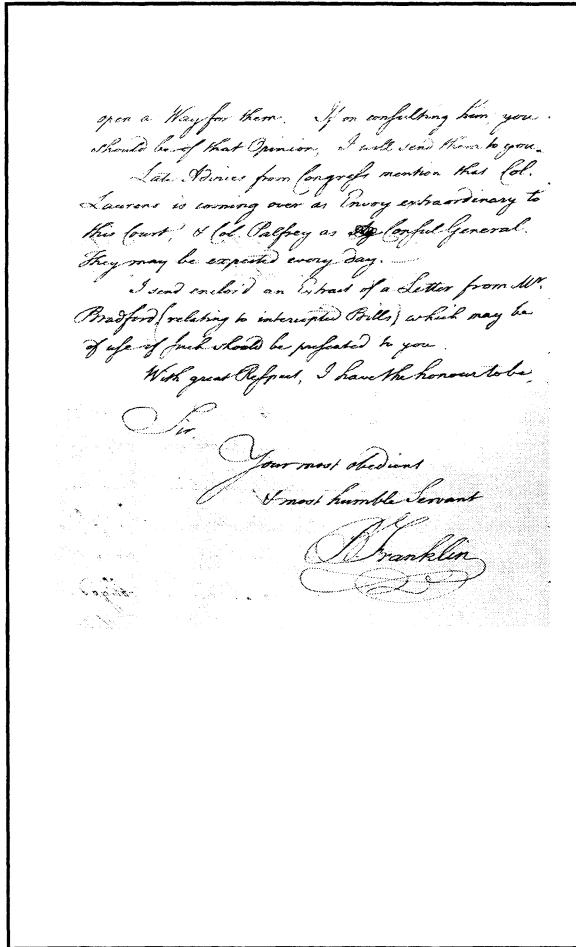 open a Way for them. If on consulting him, you
should be of that Opinion, I will send them to you.
Late Advices from Congress mention that Col.
Laurens is coming over as Envoy extraordinary to
this Court, & Col. Palfrey as Consul General.
They may be expected every day.
I send enclos'd an Extract of a Letter from Mr.
Bradford (relating to intercepted Bills) which may be
of use if such should be presented to you.
With great Respect, I have the honour to be,
Sir,
Your most obedient
& most humble Servant
B Franklin